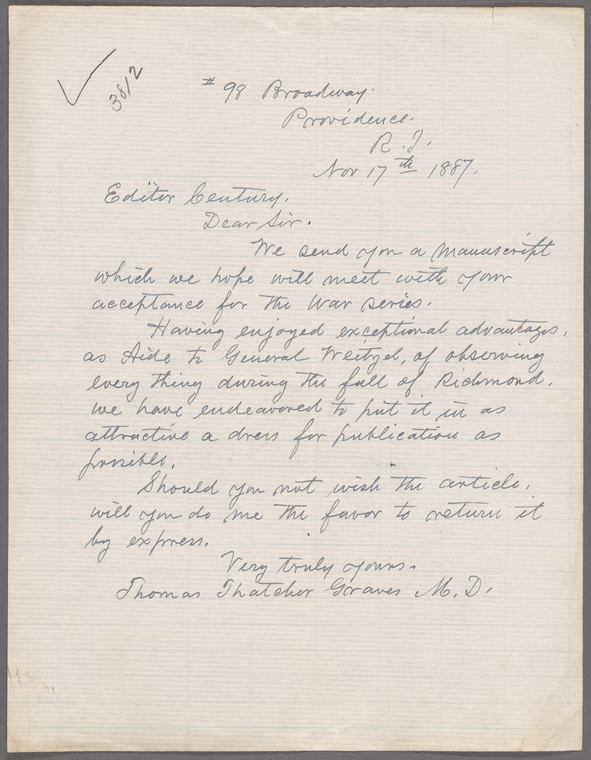 3812
# 98 Broadway.
Providence.
R. I.
Nov 17th 1887.
Editor Century.
Dear Sir.
We send you a manuscript
which we hope will meet with your
acceptance for the War series.
Having enjoyed exceptional advantages,
as Aide to General Weitzel, of observing
every thing during the fall of Richmond,
we have endeavored to put it in as
attractive a dress for publication as
possible.
Should you not wish the article,
will you do me the favor to return it
by express.
Very truly yours.
Thomas Thatcher Graves M.D.